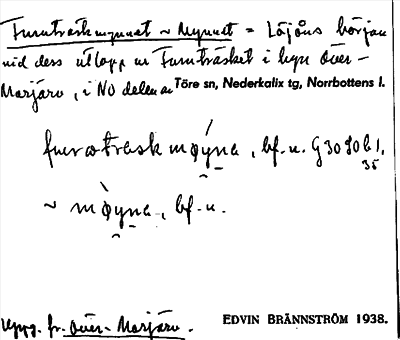 Furuträskmynnet ~ Mynnet = Löjåns början
vid dess utlopp ur Furuträsket i byn Över-
Morjärv, i NO delen av Töre sn, Nederkalix tg, Norrbottens l.
bf. u.
~ møyna, bf. u.
Uppg. fr. Över-Morjärv.
EDVIN BRÄNNSTRÖM 1938.